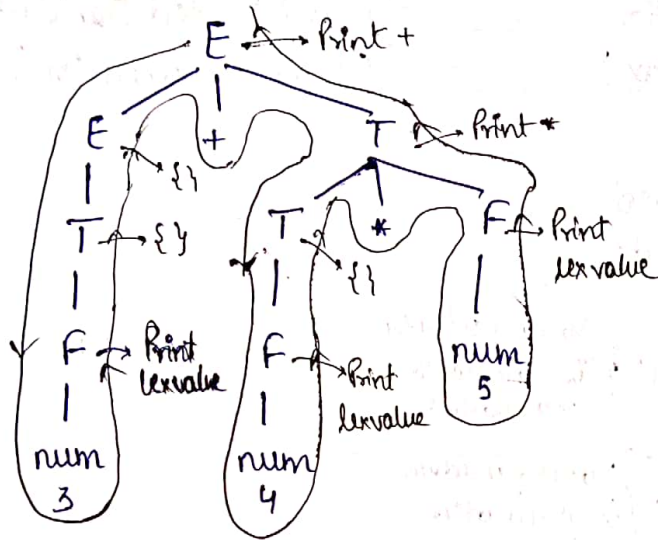 E Print +
E + T Print *
{ }
T { } T * F Print
lexvalue
{ }
F Print lexvalue F Print lexvalue num
5
num
3
num
4